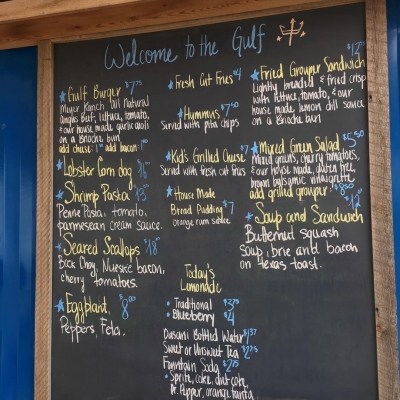 Welcome to the Gulf
Gulf Burger $7.75
Meyer Ranch all Natural
Angus Beef, lettuce, tomato,
& our house made garlic aioli
on a Brioche bun
add cheese .1.00 add bacon .1.00
Lobster Corn dog $15
Shrimp Pasta $13
Penne Pasta, tomato,
parmesean cream sauce.
Seared Scallops $18
Bock Choy, Nueske bacon,
cherry tomatoes.
Eggplant, $8.00
Peppers, Feta.
Fresh Cut Fries $4
Hummus $7.50
Served with pita chips
Kid's Grilled Cheese $7
Served with fresh cut fries
House Made
Bread Pudding $7
Orange rum sauce
Today's
Lemonade
• Traditional $3.75
• Blueberry $4
Dasani Bottled Water $1.37
Sweet or Unsweet Tea $2.75
Fountain Soda $2.75
• Sprite, coke, diet coke,
Dr. Pepper, orange fanta
Fried Grouper Sandwich
Lightly breaded & fried crisp
with lettuce, tomato, & our
house made lemon dill sauce
on a Brioche bun
Mixed Green Salad $5.50
Mixed greens, cherry tomatoes,
& our house made, gluten free,
brown balsamic vinaigrette
add grilled grouper!
Soup and Sandwich $12
Butternut squash
Soup, brie and bacon
on Texas toast.